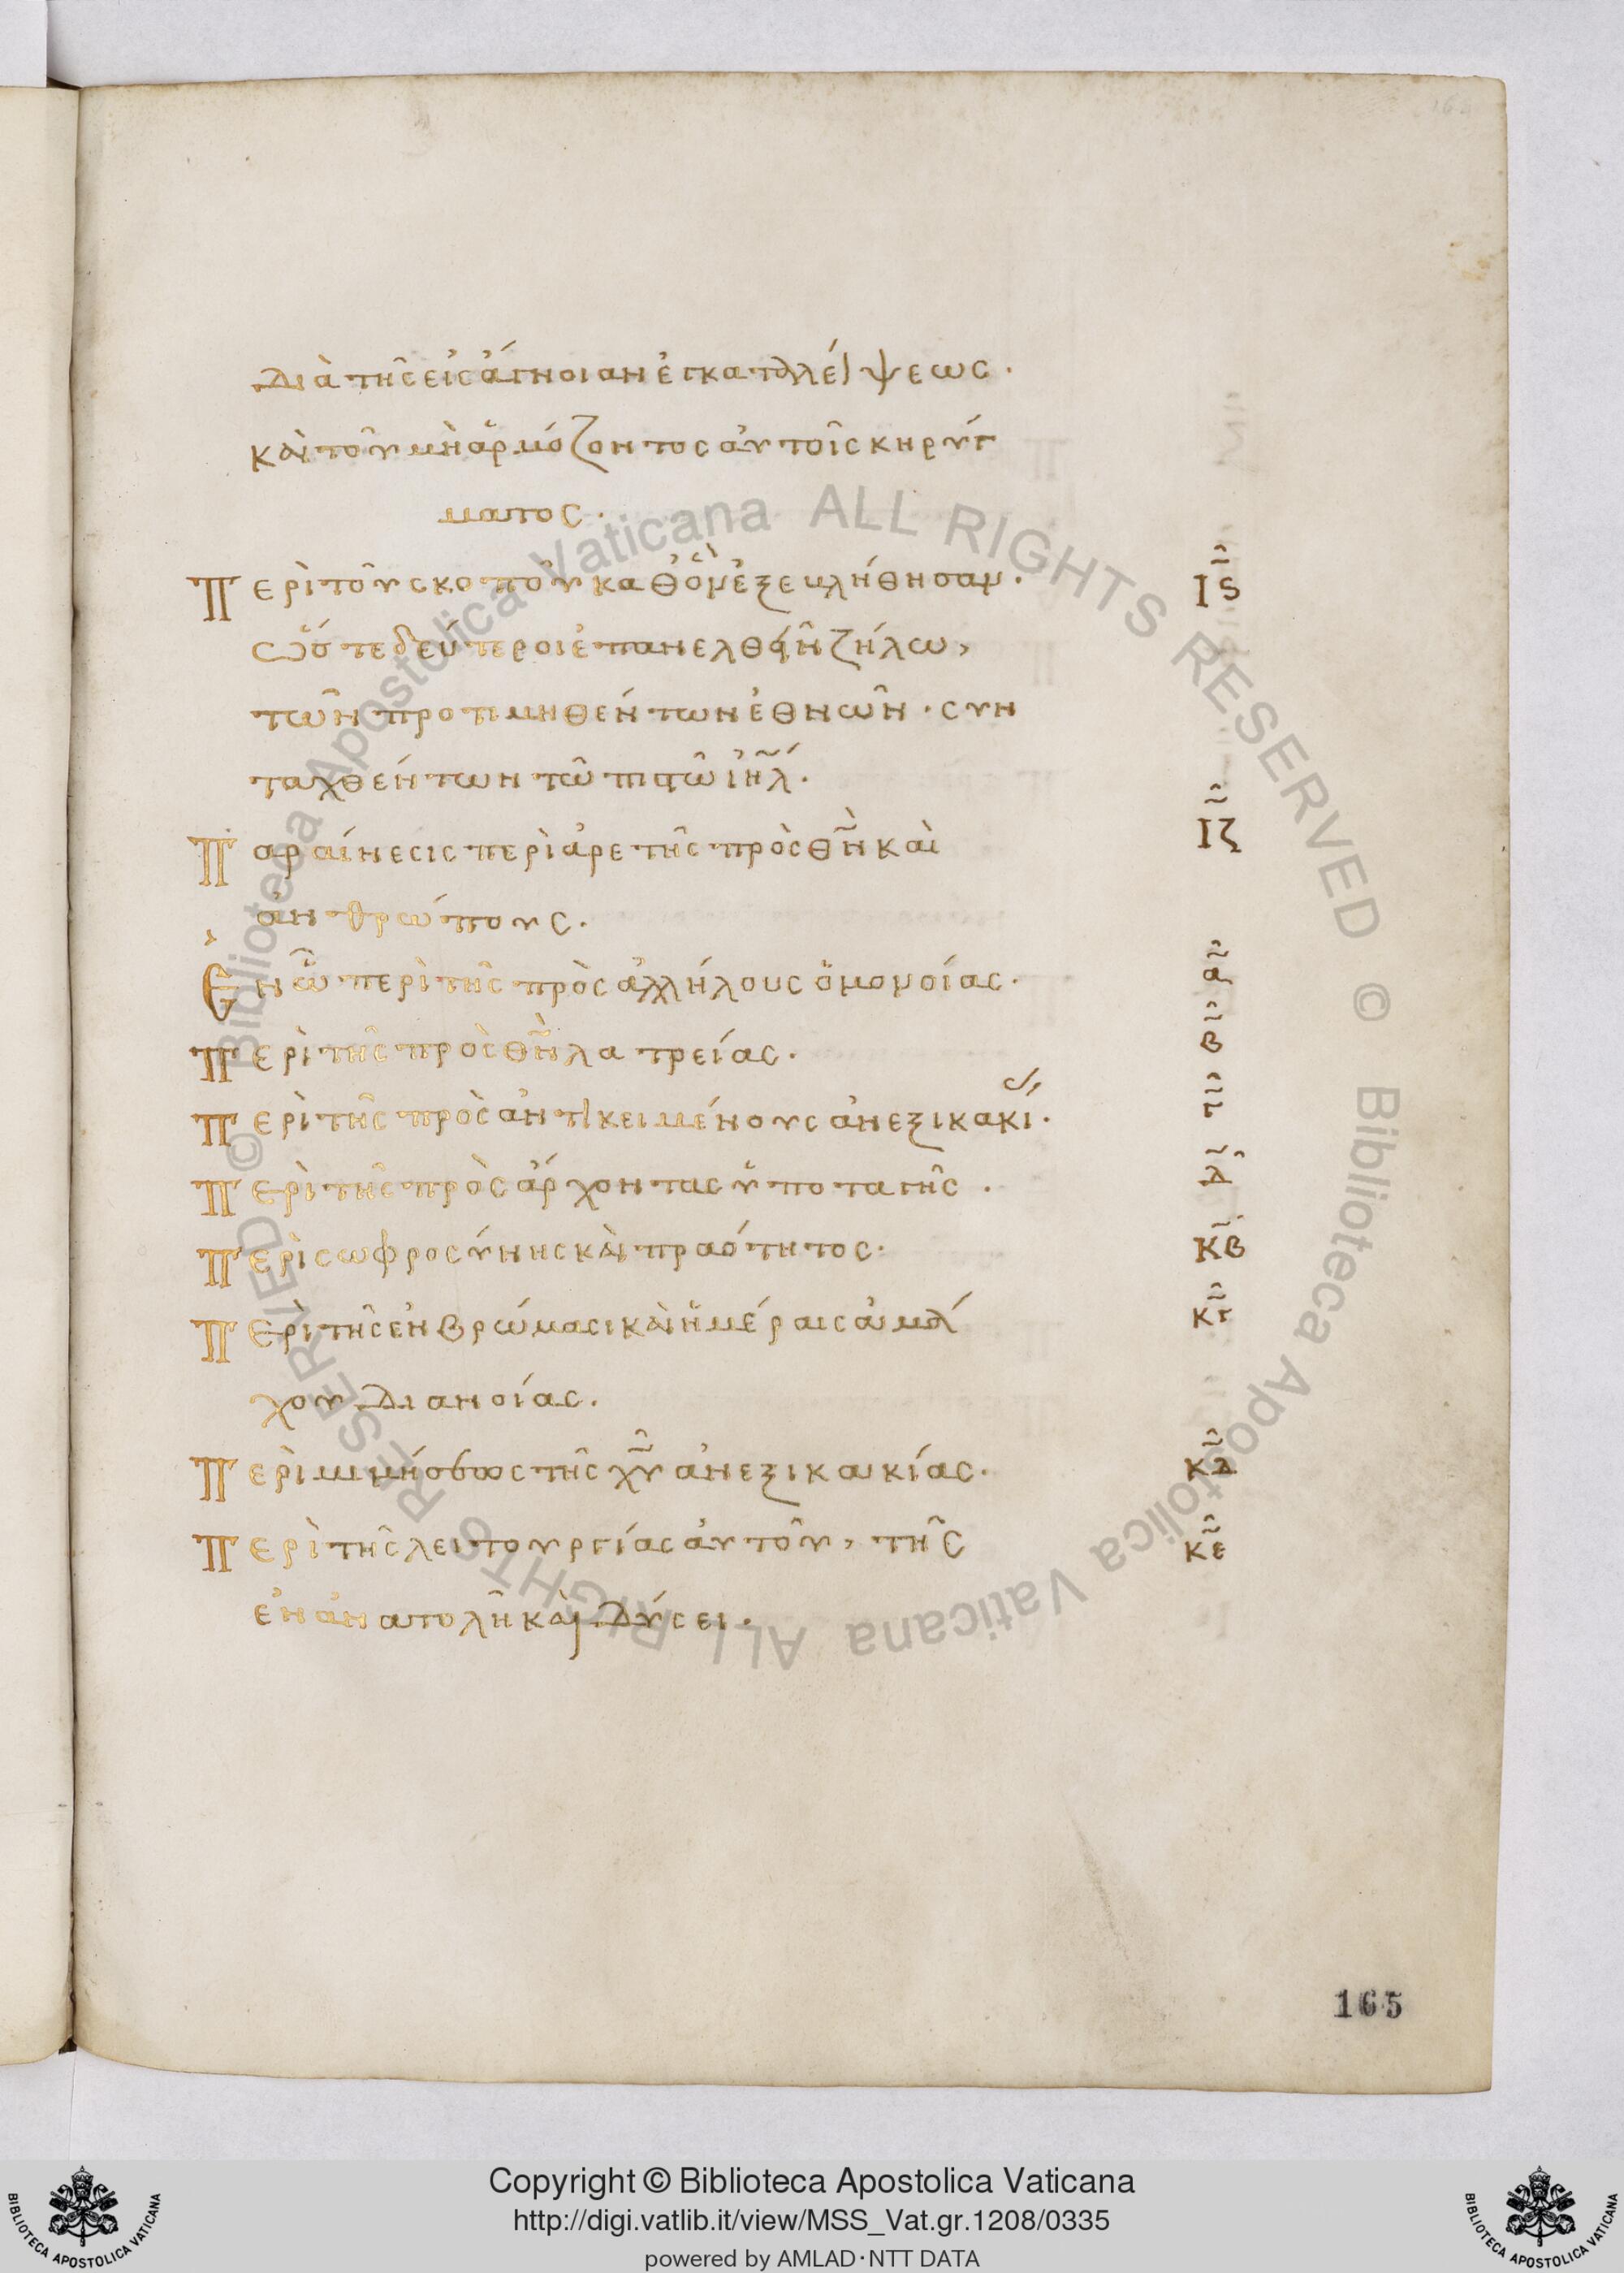 διὰ τῆς εἰς ἄγνοιαν ἐγκαταλείψεως ·
καὶ τοῦ μὴ ἁρμόζοντος αὐτοῖς κηρύγ
ματος ·
Περὶ τοῦ σκοποῦ καθ' ὃν ἐξεκλήθησαν · Ις
ὥστε δεύτεροι ἐπανελθεῖν ζήλω,
τῶν προτιμηθέντων ἐθνῶν · συν
ταχθέντων τῶ πιστῶ ἰηλ ·
Παραίνεσις περὶ ἀρετῆς πρὸς θν καὶ ΙΖ
ἀνθρώπους ·
Ἐν ὧ περὶ τῆς πρὸς ἀλλήλους ὁμονοίας · α
Περὶ τῆς πρὸς θν λατρείας · β
Περὶ τῆς πρὸς ἀντικειμένους ἀνεξικακί · γ
Περὶ τῆς πρὸς ἄρχοντας ὑποταγῆς · δ
Περὶ σωφροσύνης καὶ πραότητος · κβ
Περὶ τῆς ἐν βρώμασι καὶ ἡμέραις ἀμά κγ
χου διανοίας ·
Περὶ μιμήσεως τῆς χυ ἀνεξικακίας · κδ
Περὶ τῆς λειτουργίας αὐτοῦ, τῆς κε
ἐν ἀνατολῆ καὶ δύσει ·
165
Biblioteca Apostolica Vaticana ALL RIGHTS RESERVED ©
Biblioteca Apostolica Vaticana ALL RIGHTS RESERVED ©
Copyright © Biblioteca Apostolica Vaticana
http://digi.vatlib.it/view/MSS_Vat.gr.1208/0335
powered by AMLAD · NTT DATA
BIBLIOTECA APOSTOLICA VATICANA
BIBLIOTECA APOSTOLICA VATICANA